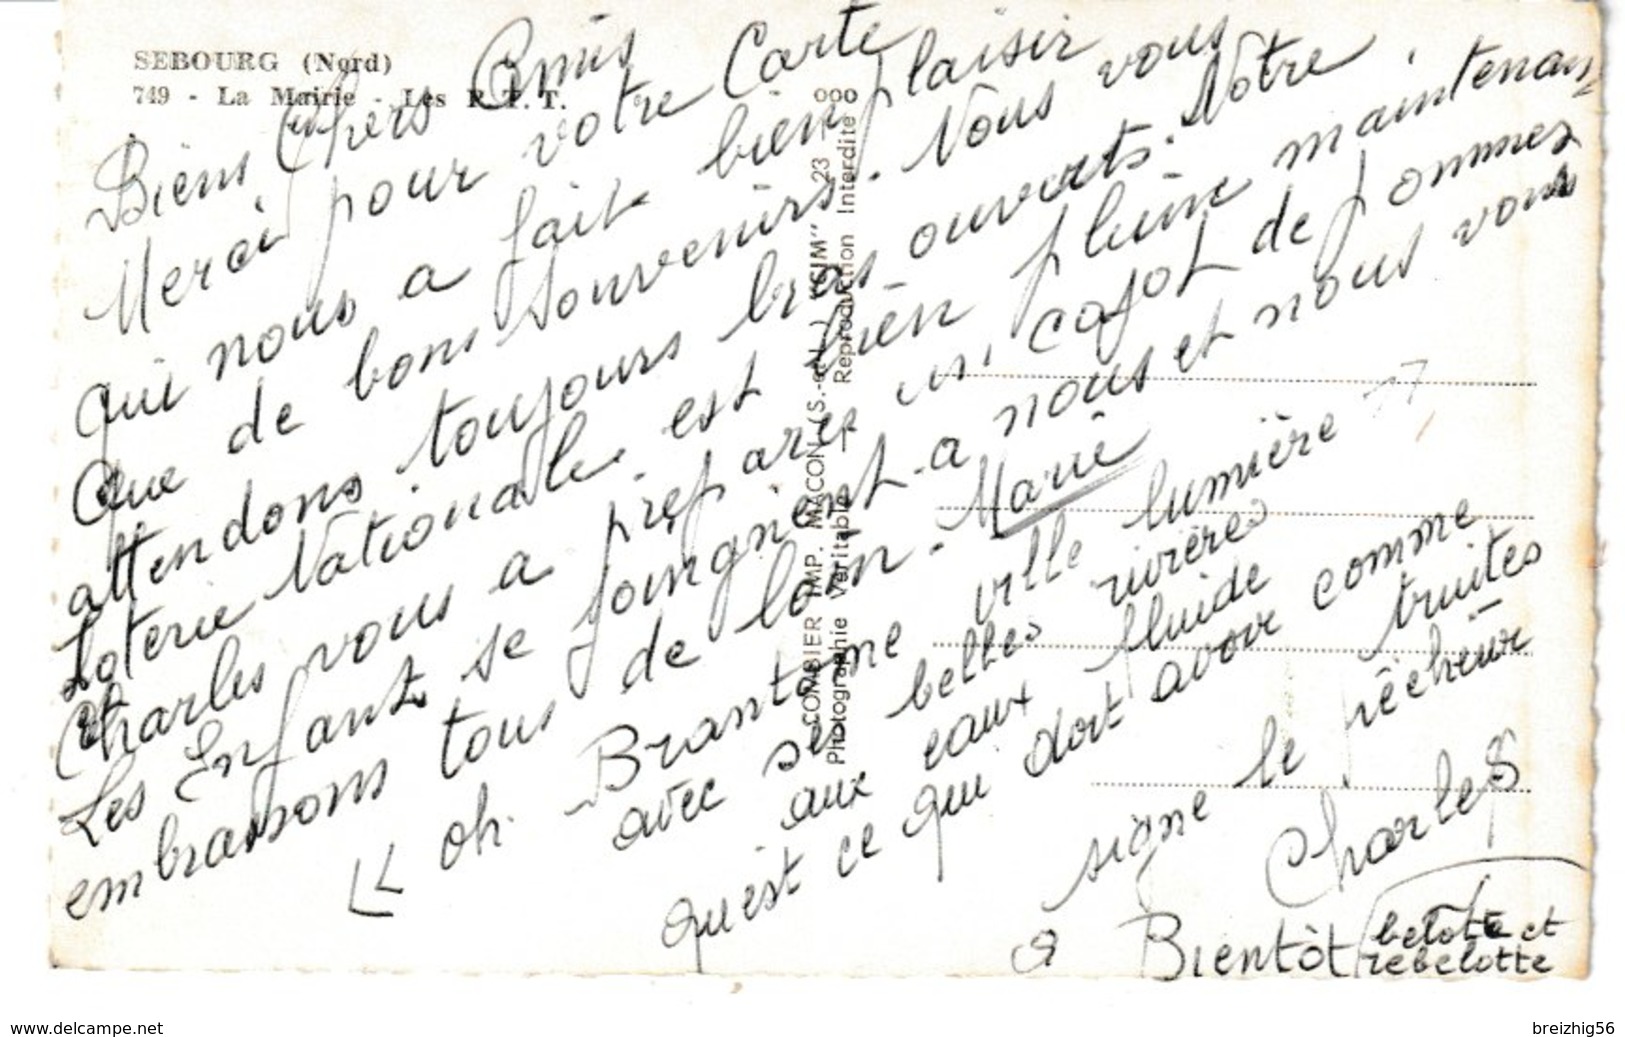 SEBOURG (Nord)
749 - La Mairie - Les P. T. T.
Biens Chers Amis
Merci pour votre Carte
qui nous a fait bien plaisir
Que de bons souvenirs. Nous vous
attendons toujours bras ouverts. Notre
Loterie Nationale est bien pleine maintenant
et Charles vous a préparés un cajot de pommes
Les Enfants se joingnent a nous et nous vous
embrassons tous de loin. Marie
" oh Brantome ville lumière "
avec ses belles rivières
aux eaux fluide
qu'est ce qui doit avoir comme truites
signe le pêcheur
Charles
a Bientôt belotte et
rebelotte
COMBIER IMP. MACON (S.-et-L.) "CIM" 23 - 000
Photographie Véritable — Reproduction Interdite
www.delcampe.net
breizhig56